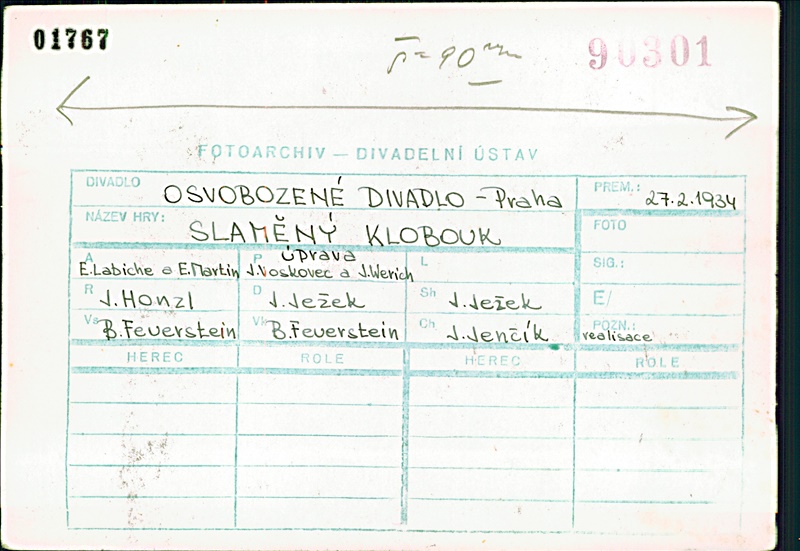 01767
š=90mm
90301
FOTOARCHIV — DIVADELNÍ ÚSTAV
DIVADLO OSVOBOZENÉ DIVADLO - Praha
PREM.: 27.2.1934
NÁZEV HRY: SLAMĚNÝ KLOBOUK
FOTO
A E.Labiche a E.Martin
P úprava J.Voskovec a J.Werich
L
SIG.:
R J.Honzl
D J.Ježek
Sh J.Ježek
E/
Vs B.Feuerstein
Vk B.Feuerstein
Ch J.Jenčík
POZN.: realisace
HEREC ROLE HEREC ROLE